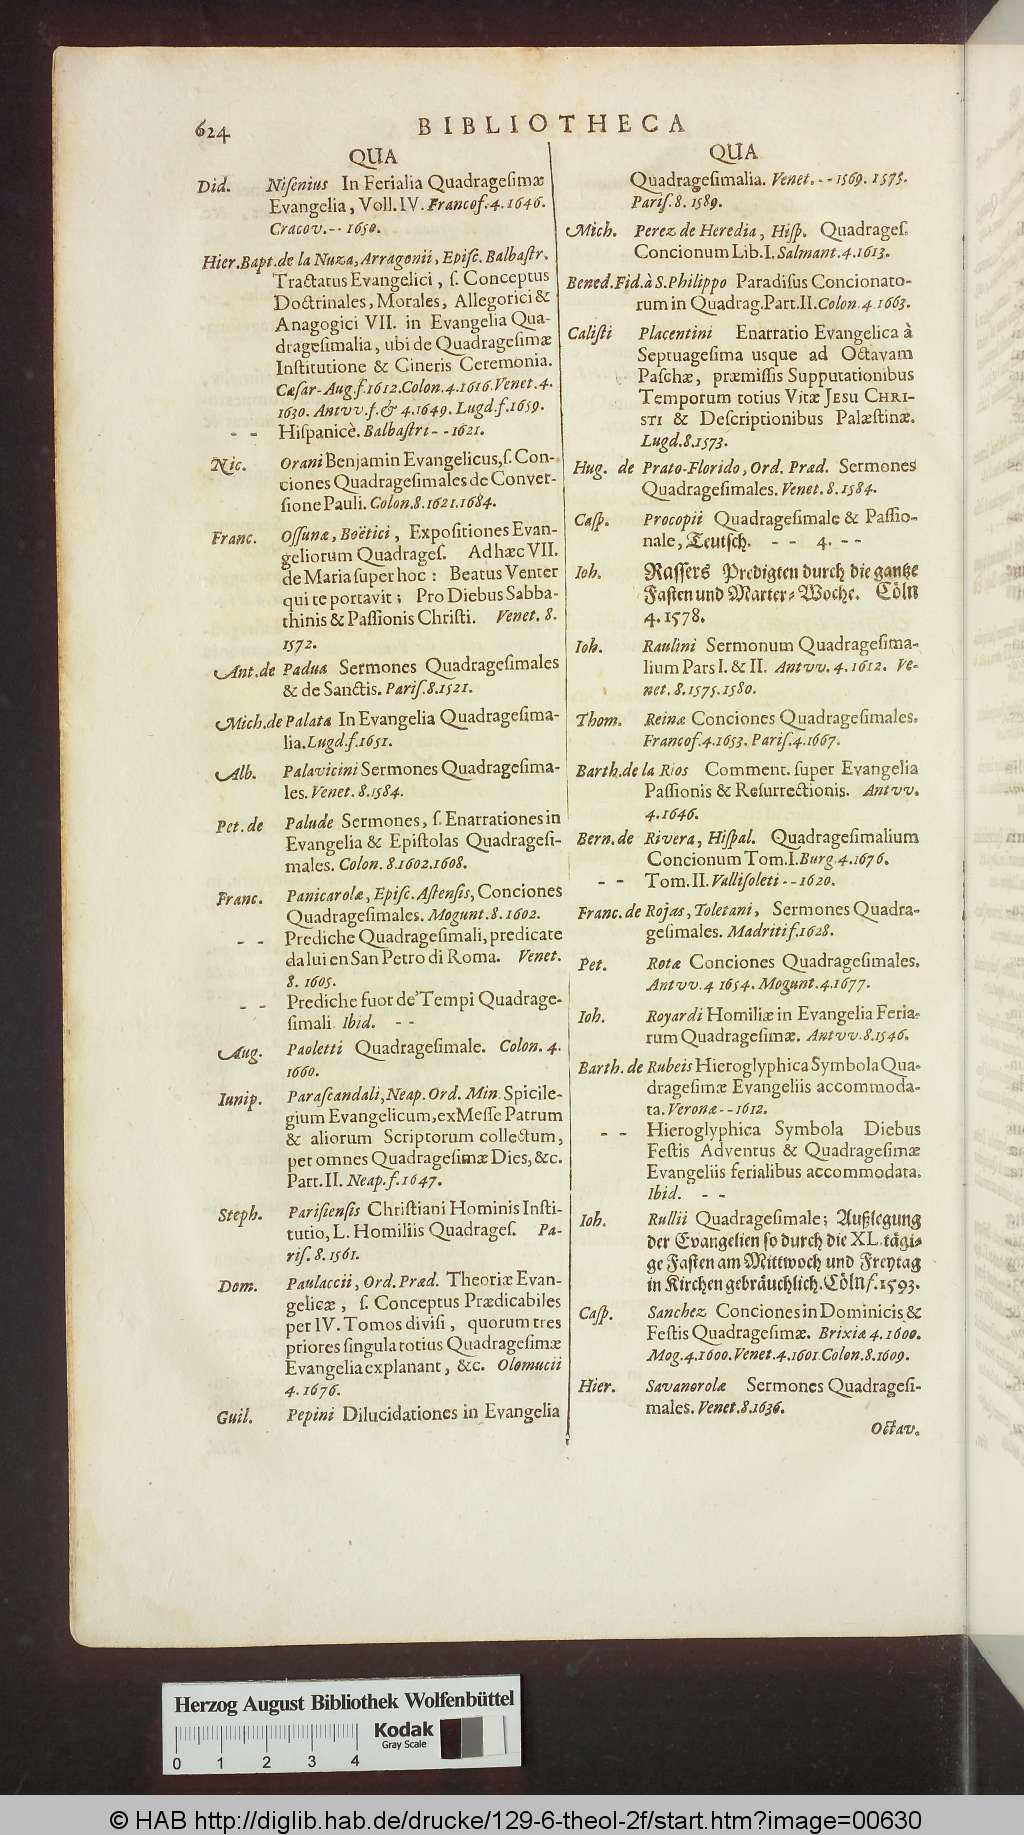 624
BIBLIOTHECA
QUA
Did. Nisenius In Ferialia Quadragesimæ
Evangelia, Voll. IV. Francof. 4. 1646.
Cracov. - - 1650.
Hier. Bapt. de la Nuza, Arragonii, Episc. Balbastr.
Tractatus Evangelici, s. Conceptus
Doctrinales, Morales, Allegorici &
Anagogici VII. in Evangelia Qua-
dragesimalia, ubi de Quadragesimæ
Institutione & Cineris Ceremonia.
Cæsar-Aug. f. 1612. Colon. 4. 1616. Venet. 4.
1630. Antvv. f. & 4. 1649. Lugd. f. 1659.
- - Hispanicè. Balbastri - - 1621.
Nic. Orani Benjamin Evangelicus, s. Con-
ciones Quadragesimales de Conver-
sione Pauli. Colon. 8. 1621. 1684.
Franc. Ossunæ, Boëtici, Expositiones Evan-
geliorum Quadrages. Ad hæc VII.
de Maria super hoc: Beatus Venter
qui te portavit; Pro Diebus Sabba-
thinis & Passionis Christi. Venet. 8.
1572.
Ant. de Padua Sermones Quadragesimales
& de Sanctis. Paris. 8. 1521.
Mich. de Palata In Evangelia Quadragesima-
lia. Lugd. f. 1651.
Alb. Palavicini Sermones Quadragesima-
les. Venet. 8. 1584.
Pet. de Palude Sermones, s. Enarrationes in
Evangelia & Epistolas Quadragesi-
males. Colon. 8. 1602. 1608.
Franc. Panicarolæ, Episc. Astensis, Conciones
Quadragesimales. Mogunt. 8. 1602.
- - Prediche Quadragesimali, predicate
da lui en San Petro di Roma. Venet.
8. 1605.
- - Prediche fuor de' Tempi Quadrage-
simali Ibid. - -
Aug. Paoletti Quadragesimale. Colon. 4.
1660.
Iunip. Parascandali, Neap. Ord. Min. Spicile-
gium Evangelicum, ex Messe Patrum
& aliorum Scriptorum collectum,
per omnes Quadragesimæ Dies, &c.
Part. II. Neap. f. 1647.
Steph. Parisiensis Christiani Hominis Insti-
tutio, L. Homiliis Quadrages. Pa-
ris. 8. 1561.
Dom. Paulaccii, Ord. Præd. Theoriæ Evan-
gelicæ, s. Conceptus Prædicabiles
per IV. Tomos divisi, quorum tres
priores singula totius Quadragesimæ
Evangelia explanant, &c. Olomucii
4. 1676.
Guil. Pepini Dilucidationes in Evangelia
QUA
Quadragesimalia. Venet. - - 1569. 1575.
Paris. 8. 1589.
Mich. Perez de Heredia, Hisp. Quadrages.
Concionum Lib. I. Salmant. 4. 1613.
Bened. Fid. à S. Philippo Paradisus Concionato-
rum in Quadrag. Part. II. Colon. 4. 1663.
Calisti Placentini Enarratio Evangelica à
Septuagesima usque ad Octavam
Paschæ, præmissis Supputationibus
Temporum totius Vitæ JESU CHRI-
STI & Descriptionibus Palæstinæ.
Lugd. 8. 1573.
Hug. de Prato-Florido, Ord. Præd. Sermones
Quadragesimales. Venet. 8. 1584.
Casp. Procopii Quadragesimale & Passio-
nale, Teutsch. - - 4. - -
Ioh. Rassers Predigten durch die gantze
Fasten und Marter-Woche. Cöln
4. 1578.
Ioh. Raulini Sermonum Quadragesima-
lium Pars I. & II. Antvv. 4. 1612. Ve-
net. 8. 1575. 1580.
Thom. Reinæ Conciones Quadragesimales.
Francof. 4. 1653. Paris. 4. 1667.
Barth. de la Rios Comment. super Evangelia
Passionis & Resurrectionis. Antvv.
4. 1646.
Bern. de Rivera, Hispal. Quadragesimalium
Concionum Tom. I. Burg. 4. 1676.
- - Tom. II. Vallisoleti - - 1620.
Franc. de Rojas, Toletani, Sermones Quadra-
gesimales. Madriti f. 1628.
Pet. Rotæ Conciones Quadragesimales.
Antvv. 4 1654. Mogunt. 4. 1677.
Ioh. Royardi Homiliæ in Evangelia Feria-
rum Quadragesimæ. Antvv. 8. 1546.
Barth. de Rubeis Hieroglyphica Symbola Qua-
dragesimæ Evangeliis accommoda-
ta. Veronæ - - 1612.
- - Hieroglyphica Symbola Diebus
Festis Adventus & Quadragesimæ
Evangeliis ferialibus accommodata.
Ibid. - -
Ioh. Rullii Quadragesimale; Außlegung
der Evangelien so durch die XL. tägi-
ge Fasten am Mittwoch und Freytag
in Kirchen gebräuchlich. Cöln f. 1593.
Casp. Sanchez Conciones in Dominicis &
Festis Quadragesimæ. Brixiæ 4. 1600.
Mog. 4. 1600. Venet. 4. 1601. Colon. 8. 1609.
Hier. Savanorolæ Sermones Quadragesi-
males. Venet. 8. 1636.
Octav.
Herzog August Bibliothek Wolfenbüttel
Kodak
Gray Scale
0 1 2 3 4
© HAB http://diglib.hab.de/drucke/129-6-theol-2f/start.htm?image=00630